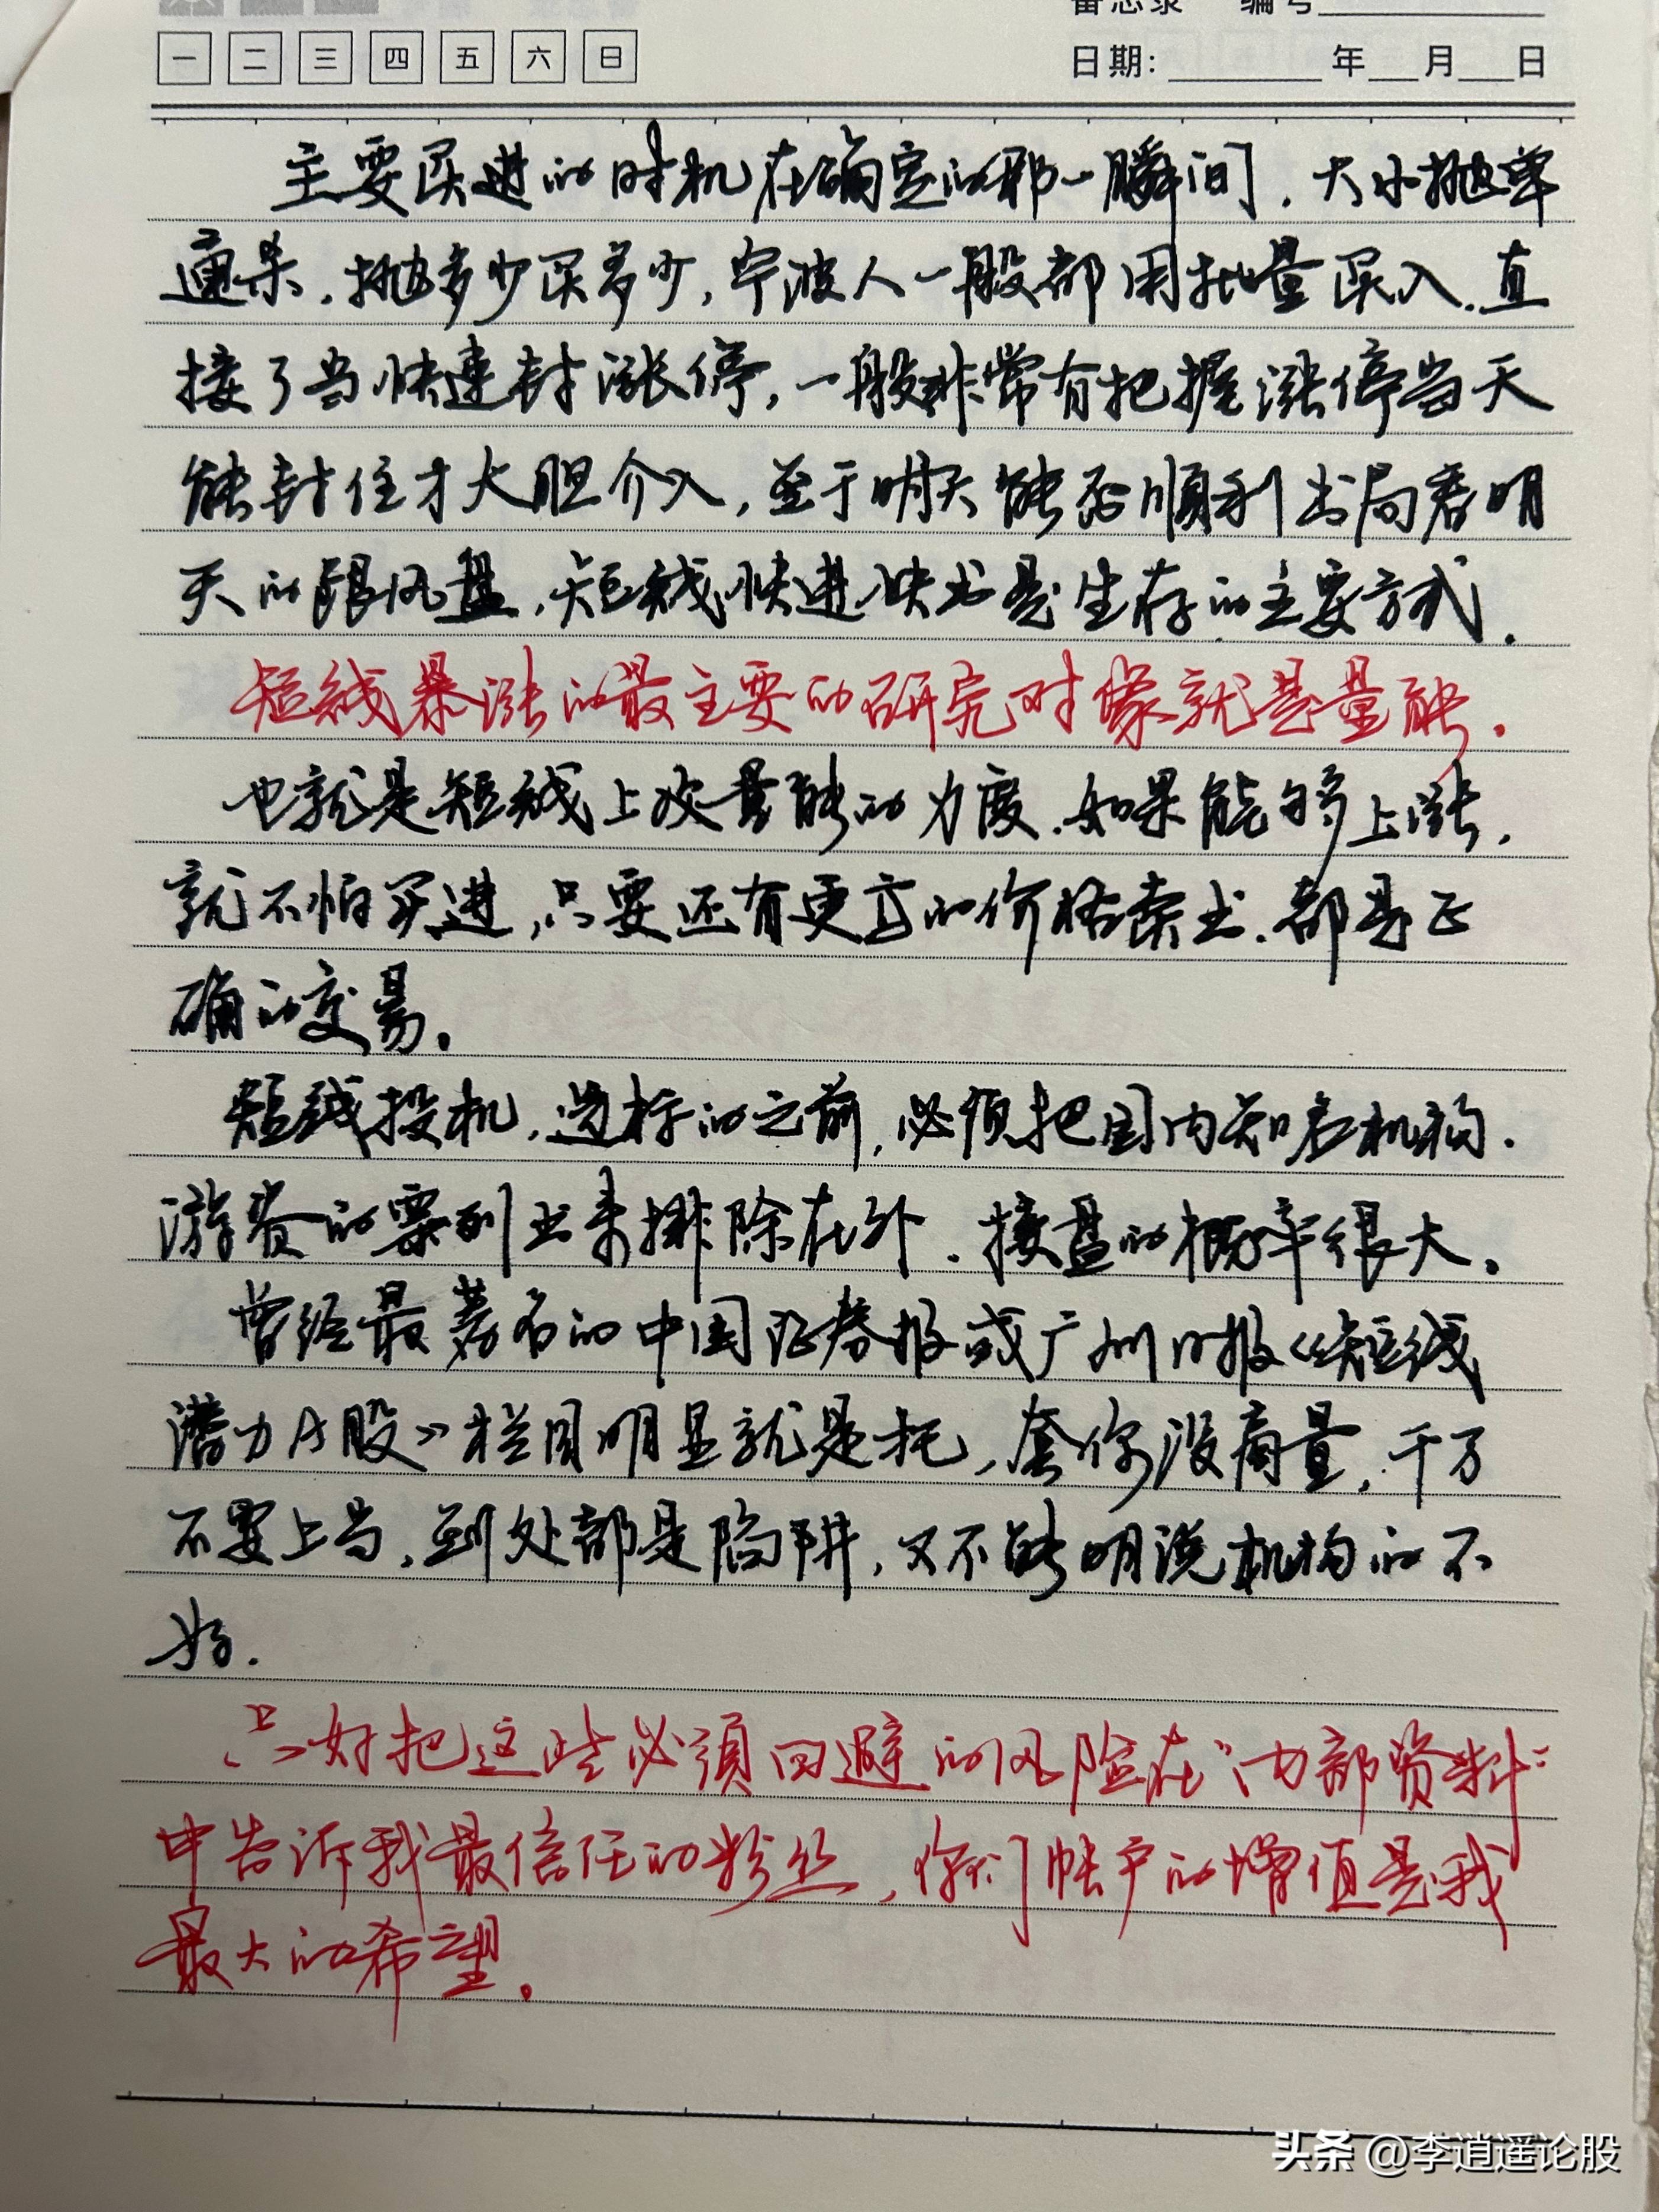 备忘录 编号
一 二 三 四 五 六 日
日期: 年 月 日
主要买进的时机在确定的那一瞬间.大小抛单
通杀.抛多少买多少,宁波人一般都用批量买入.直
接了当快速封涨停,一般非常有把握涨停当天
能封住才大胆介入,至于明天能否顺利出局看明
天的跟风盘.短线快进快出是生存的主要方式.
短线暴涨的最主要的研究对像就是量能.
也就是短线上攻量能的力度.如果能够上涨,
就不怕买进,只要还有更高的价格卖出.都是正
确的交易.
短线投机,选标的之前,必须把国内知名机构.
游资的票列出来排除在外.接盘的概率很大.
曾经最著名的中国证券报或广州日报《短线
潜力A股》栏目明显就是托,套你没商量,千万
不要上当,到处都是陷阱,又不能明说机构的不
好.
只好把这些必须回避的风险在“内部资料”
中告诉我最信任的粉丝,你们帐户的增值是我
最大的希望.
头条 @李逍遥论股